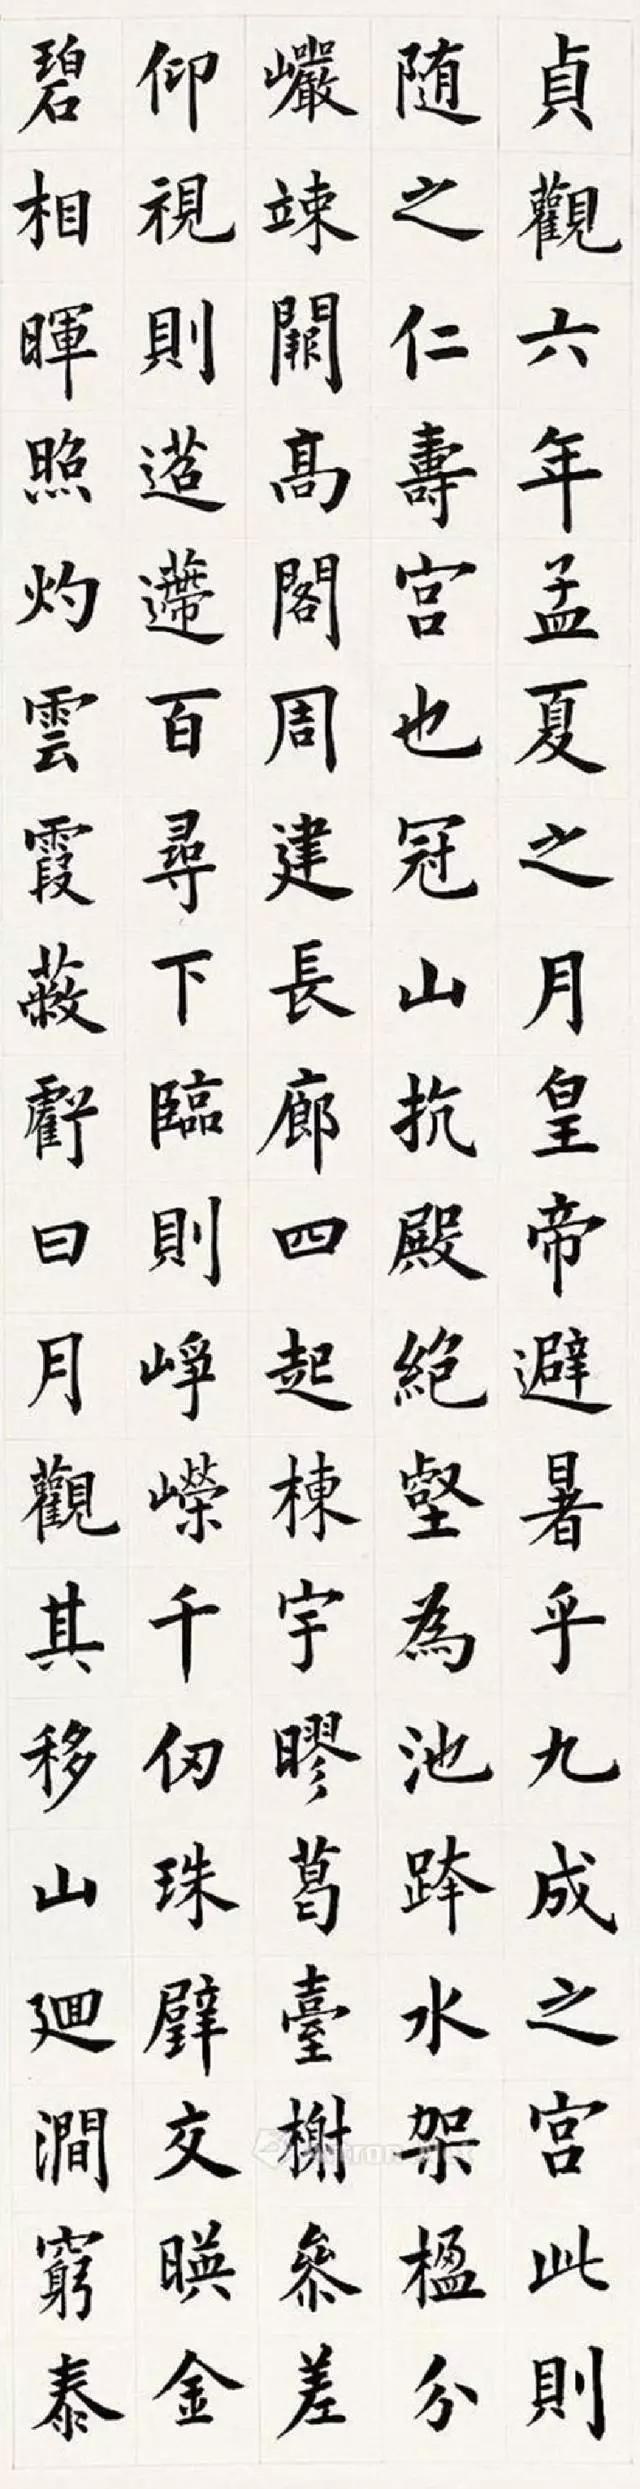 貞觀六年孟夏之月皇帝避暑乎九成之宮此則
随之仁壽宮也冠山抗殿絶壑為池跨水架楹分
巖竦闕高閣周建長廊四起棟宇膠葛臺榭參差
仰視則迢遰百尋下臨則崢嶸千仞珠璧交暎金
碧相暉照灼雲霞蔽虧日月觀其移山迴澗窮泰